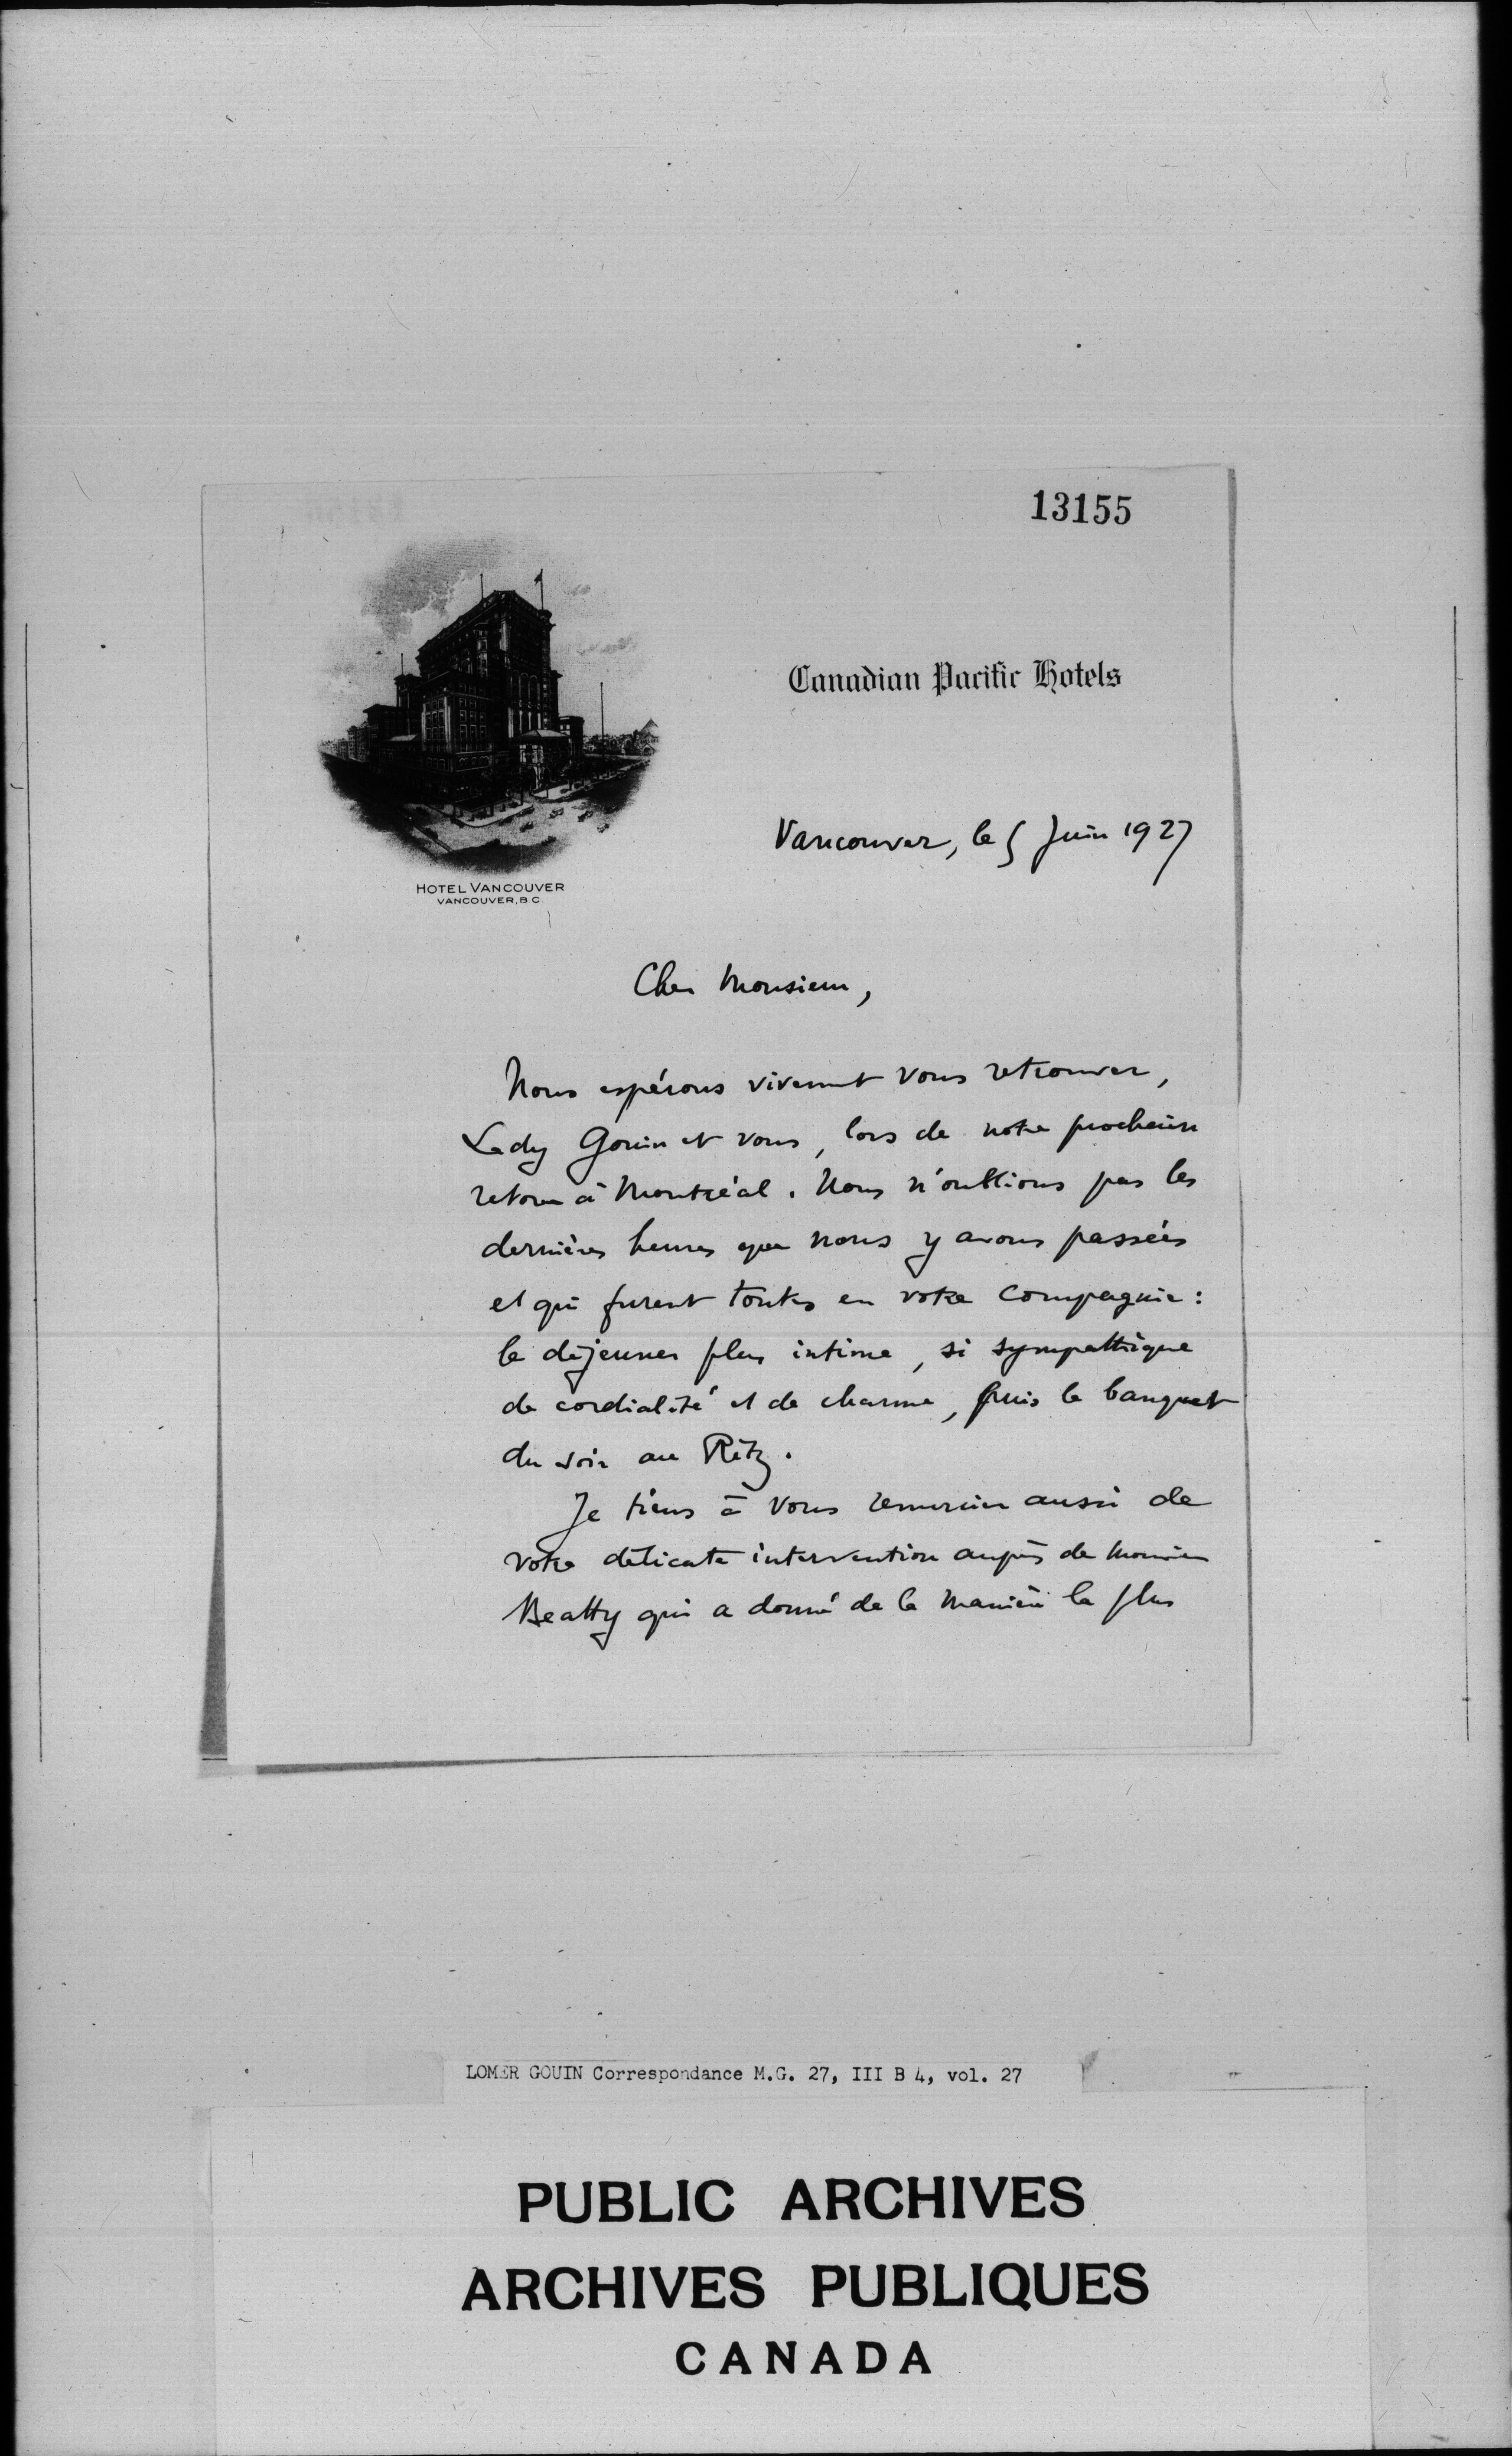 13155
Canadian Pacific Hotels
Vancouver, le 5 Juin 1927
HOTEL VANCOUVER
VANCOUVER, B.C.
Cher Monsieur,
Nous espérons vivement vous retrouver,
Lady Gouin et vous, lors de notre prochain
retour à Montréal. Nous n'oublions pas les
dernières heures que nous y avons passées
et qui furent toutes en votre compagnie :
le déjeuner plus intime, si sympathique
de cordialité et de charme, puis le banquet
du soir au Ritz.
Je tiens à vous remercier aussi de
votre délicate intervention auprès de Monsieur
Beatty qui a donné de la manière la plus
LOMER GOUIN Correspondance M.G. 27, III B 4, vol. 27
PUBLIC ARCHIVES
ARCHIVES PUBLIQUES
CANADA